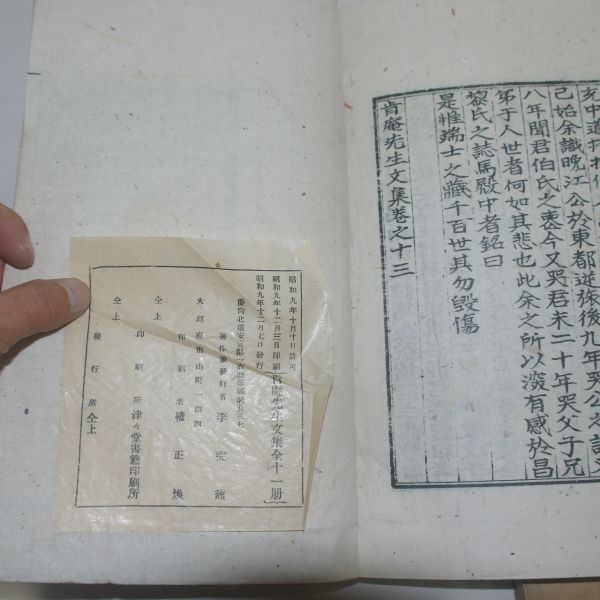 己始余識晩江公於東都逆旅後九年哭公之
八年聞君伯氏之喪今又哭君未二十年哭父子兄
弟于人世者何如其悲也此余之所以濲有感於昌
黎氏之誌馬殿中者銘曰
是惟瑞士之藏千百世其勿毀傷
肯庵先生文集卷之十三
昭和九年十月十日許可
昭和九年十二月三日印刷
昭和九年十二月七日發行
肯庵先生文集全十一册
慶尚北道安東郡
著作兼發行者 李
大邱府南山町一四四
印刷者 權正煥
仝上
印刷所 津々堂書籍印刷所
仝上
發行所 仝上